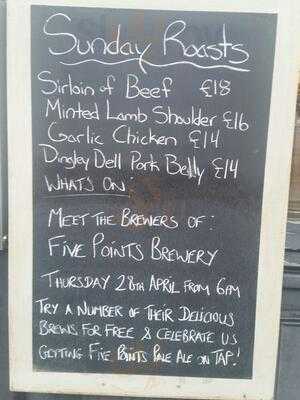 Sunday Roasts
Sirloin of Beef £18
Minted Lamb Shoulder £16
Garlic Chicken £14
Dingley Dell Pork Belly £14
WHATS ON:
MEET THE BREWERS OF:
FIVE POINTS BREWERY
THURSDAY 28TH APRIL FROM 6PM
TRY A NUMBER OF THEIR DELICIOUS
BREWS FOR FREE & CELEBRATE US
GETTING FIVE POINTS PALE ALE ON TAP!